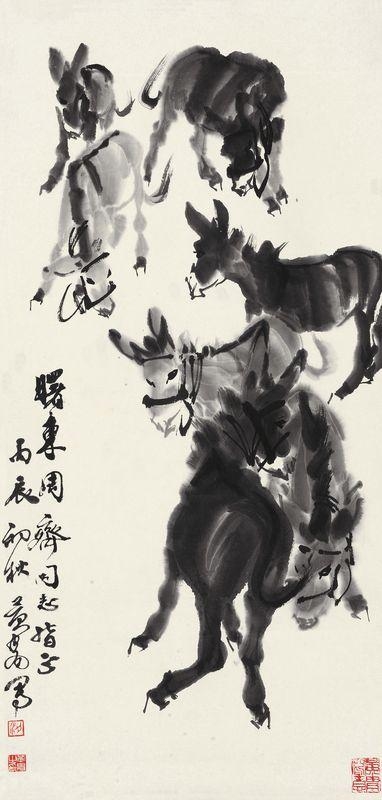 曙東周齊同志指正
丙辰初秋黃胄寫